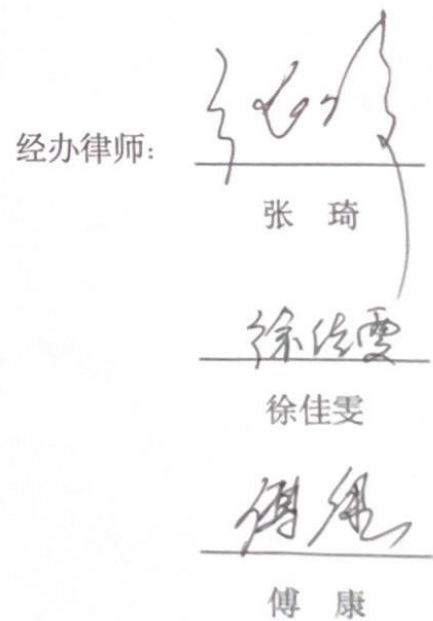 经办律师:
张 琦
徐佳雯
徐佳雯
傅康
傅 康